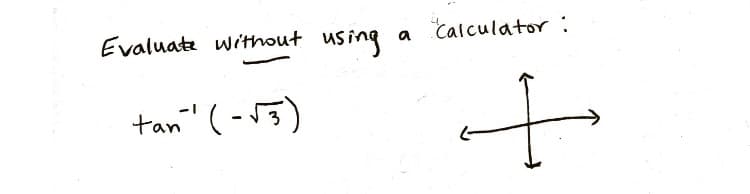 Evaluate without using a calculator :
tan⁻¹ (-√3)